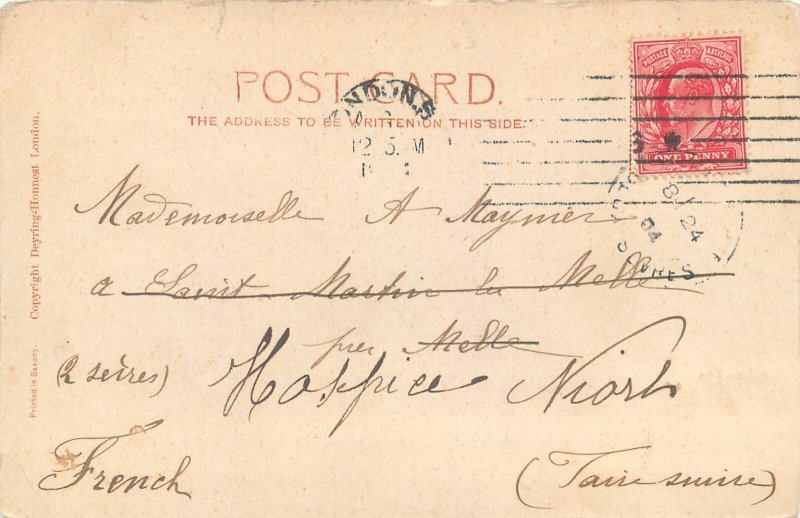 POST CARD.
THE ADDRESS TO BE WRITTEN ON THIS SIDE.
POSTAGE & REVENUE
ONE PENNY
ONDON.S
12 5. M
8 24
04
SEVRES
Mademoiselle A Maynier
a Saint Martin les Melle
par Melle
(2 sèvres) Hospice Niort
French (Faire suivre)
Copyright Deyring-Honnest London.
Printed in Saxony.